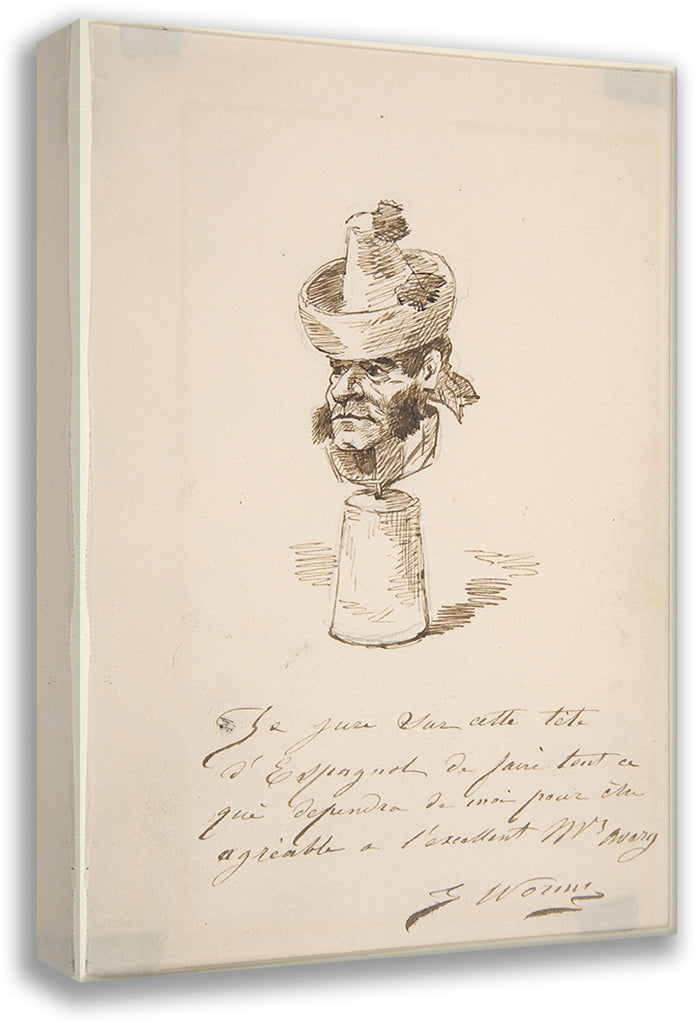 Je jure sur cette tête
d'Espagnol de faire tout ce
qui dependra de moi pour être
agréable a l'excellent Mrs avery
J Worms